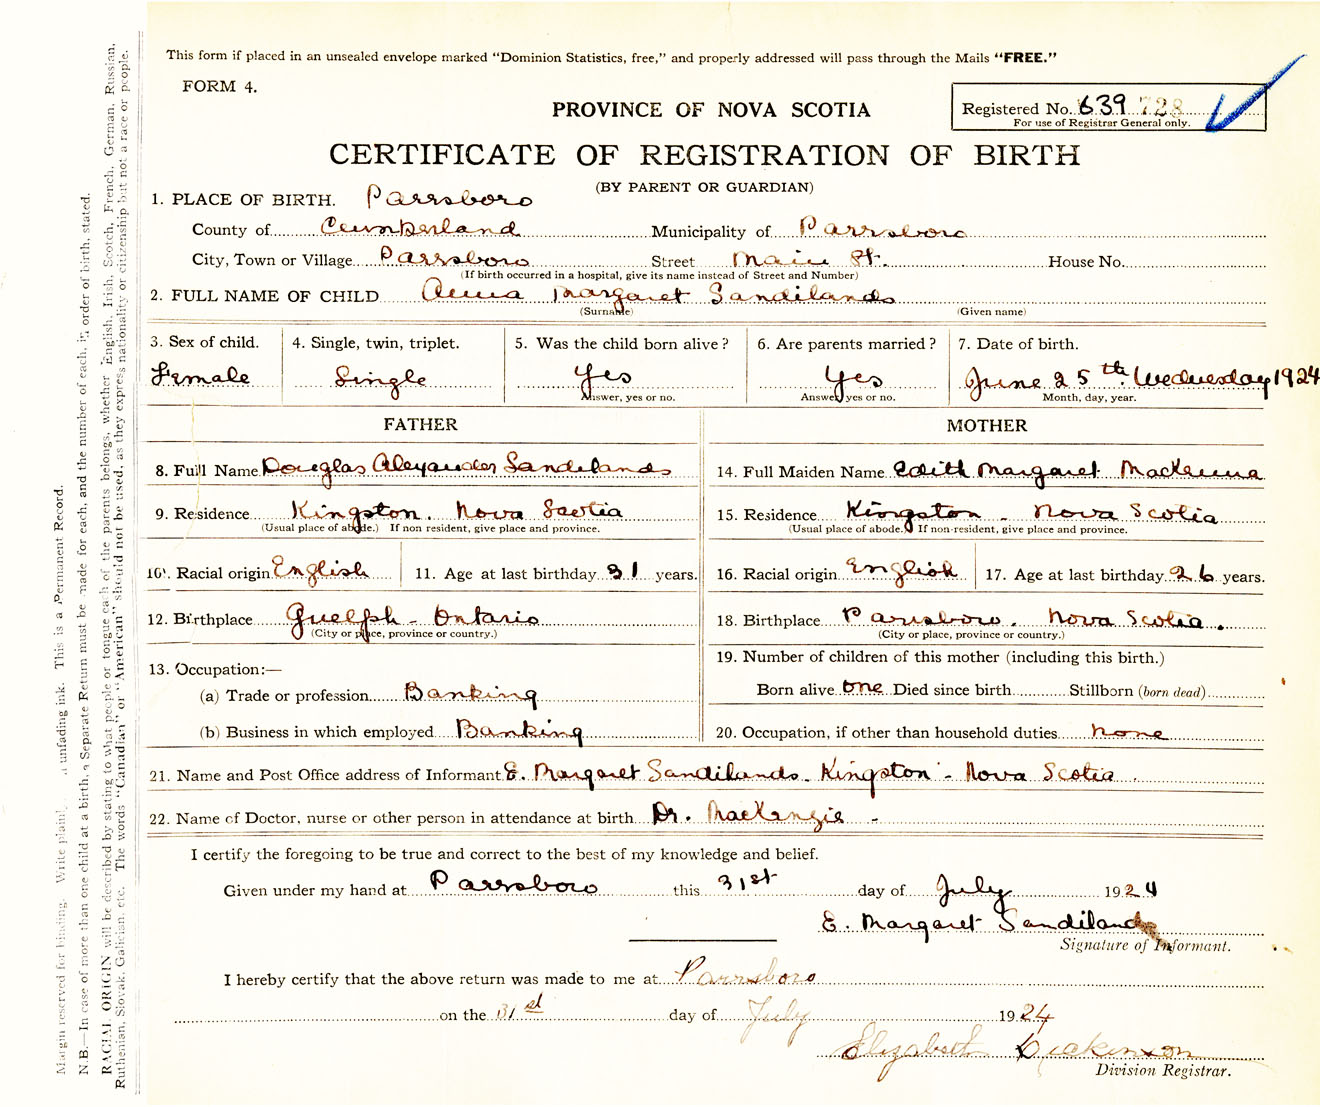 This form if placed in an unsealed envelope marked “Dominion Statistics, free,” and properly addressed will pass through the Mails “FREE.”
FORM 4.
PROVINCE OF NOVA SCOTIA
Registered No. 639 728
For use of Registrar General only.
CERTIFICATE OF REGISTRATION OF BIRTH
(BY PARENT OR GUARDIAN)
1. PLACE OF BIRTH. Parrsboro
County of Cumberland Municipality of Parrsboro
City, Town or Village Parrsboro Street Main St. House No.
(If birth occurred in a hospital, give its name instead of Street and Number)
2. FULL NAME OF CHILD Anna Margaret Sandilands
(Surname) (Given name)
3. Sex of child. 4. Single, twin, triplet. 5. Was the child born alive? 6. Are parents married? 7. Date of birth.
Female Single Yes Yes June 25th. Wednesday 1924
Answer, yes or no. Answer, yes or no. Month, day, year.
FATHER MOTHER
8. Full Name Douglas Alexander Sandilands 14. Full Maiden Name Edith Margaret MacKenna
9. Residence Kingston. Nova Scotia 15. Residence Kingston. Nova Scotia
(Usual place of abode.) If non resident, give place and province. (Usual place of abode.) If non-resident, give place and province.
10. Racial origin English 11. Age at last birthday 31 years. 16. Racial origin English 17. Age at last birthday 26 years.
12. Birthplace Guelph - Ontario 18. Birthplace Parrsboro. Nova Scotia.
(City or place, province or country.) (City or place, province or country.)
13. Occupation:— 19. Number of children of this mother (including this birth.)
(a) Trade or profession Banking Born alive one Died since birth Stillborn (born dead)
(b) Business in which employed Banking 20. Occupation, if other than household duties none
21. Name and Post Office address of Informant E. Margaret Sandilands. Kingston - Nova Scotia.
22. Name of Doctor, nurse or other person in attendance at birth Dr. MacKenzie -
I certify the foregoing to be true and correct to the best of my knowledge and belief.
Given under my hand at Parrsboro this 31st day of July 1924
E. Margaret Sandilands
Signature of Informant.
I hereby certify that the above return was made to me at Parrsboro
on the 31st day of July 1924
Elizabeth Dickinson
Division Registrar.
Margin reserved for binding. Write plainly unfading ink. This is a Permanent Record.
N.B.—In case of more than one child at a birth, a Separate Return must be made for each, and the number of each, in order of birth, stated.
RACIAL ORIGIN will be described by stating to what people or tongue each of the parents belongs, whether English, Irish, Scotch, French, German, Russian,
Ruthenian, Slovak, Galician, etc. The words “Canadian” or “American” should not be used, as they express nationality or citizenship but not a race or people.